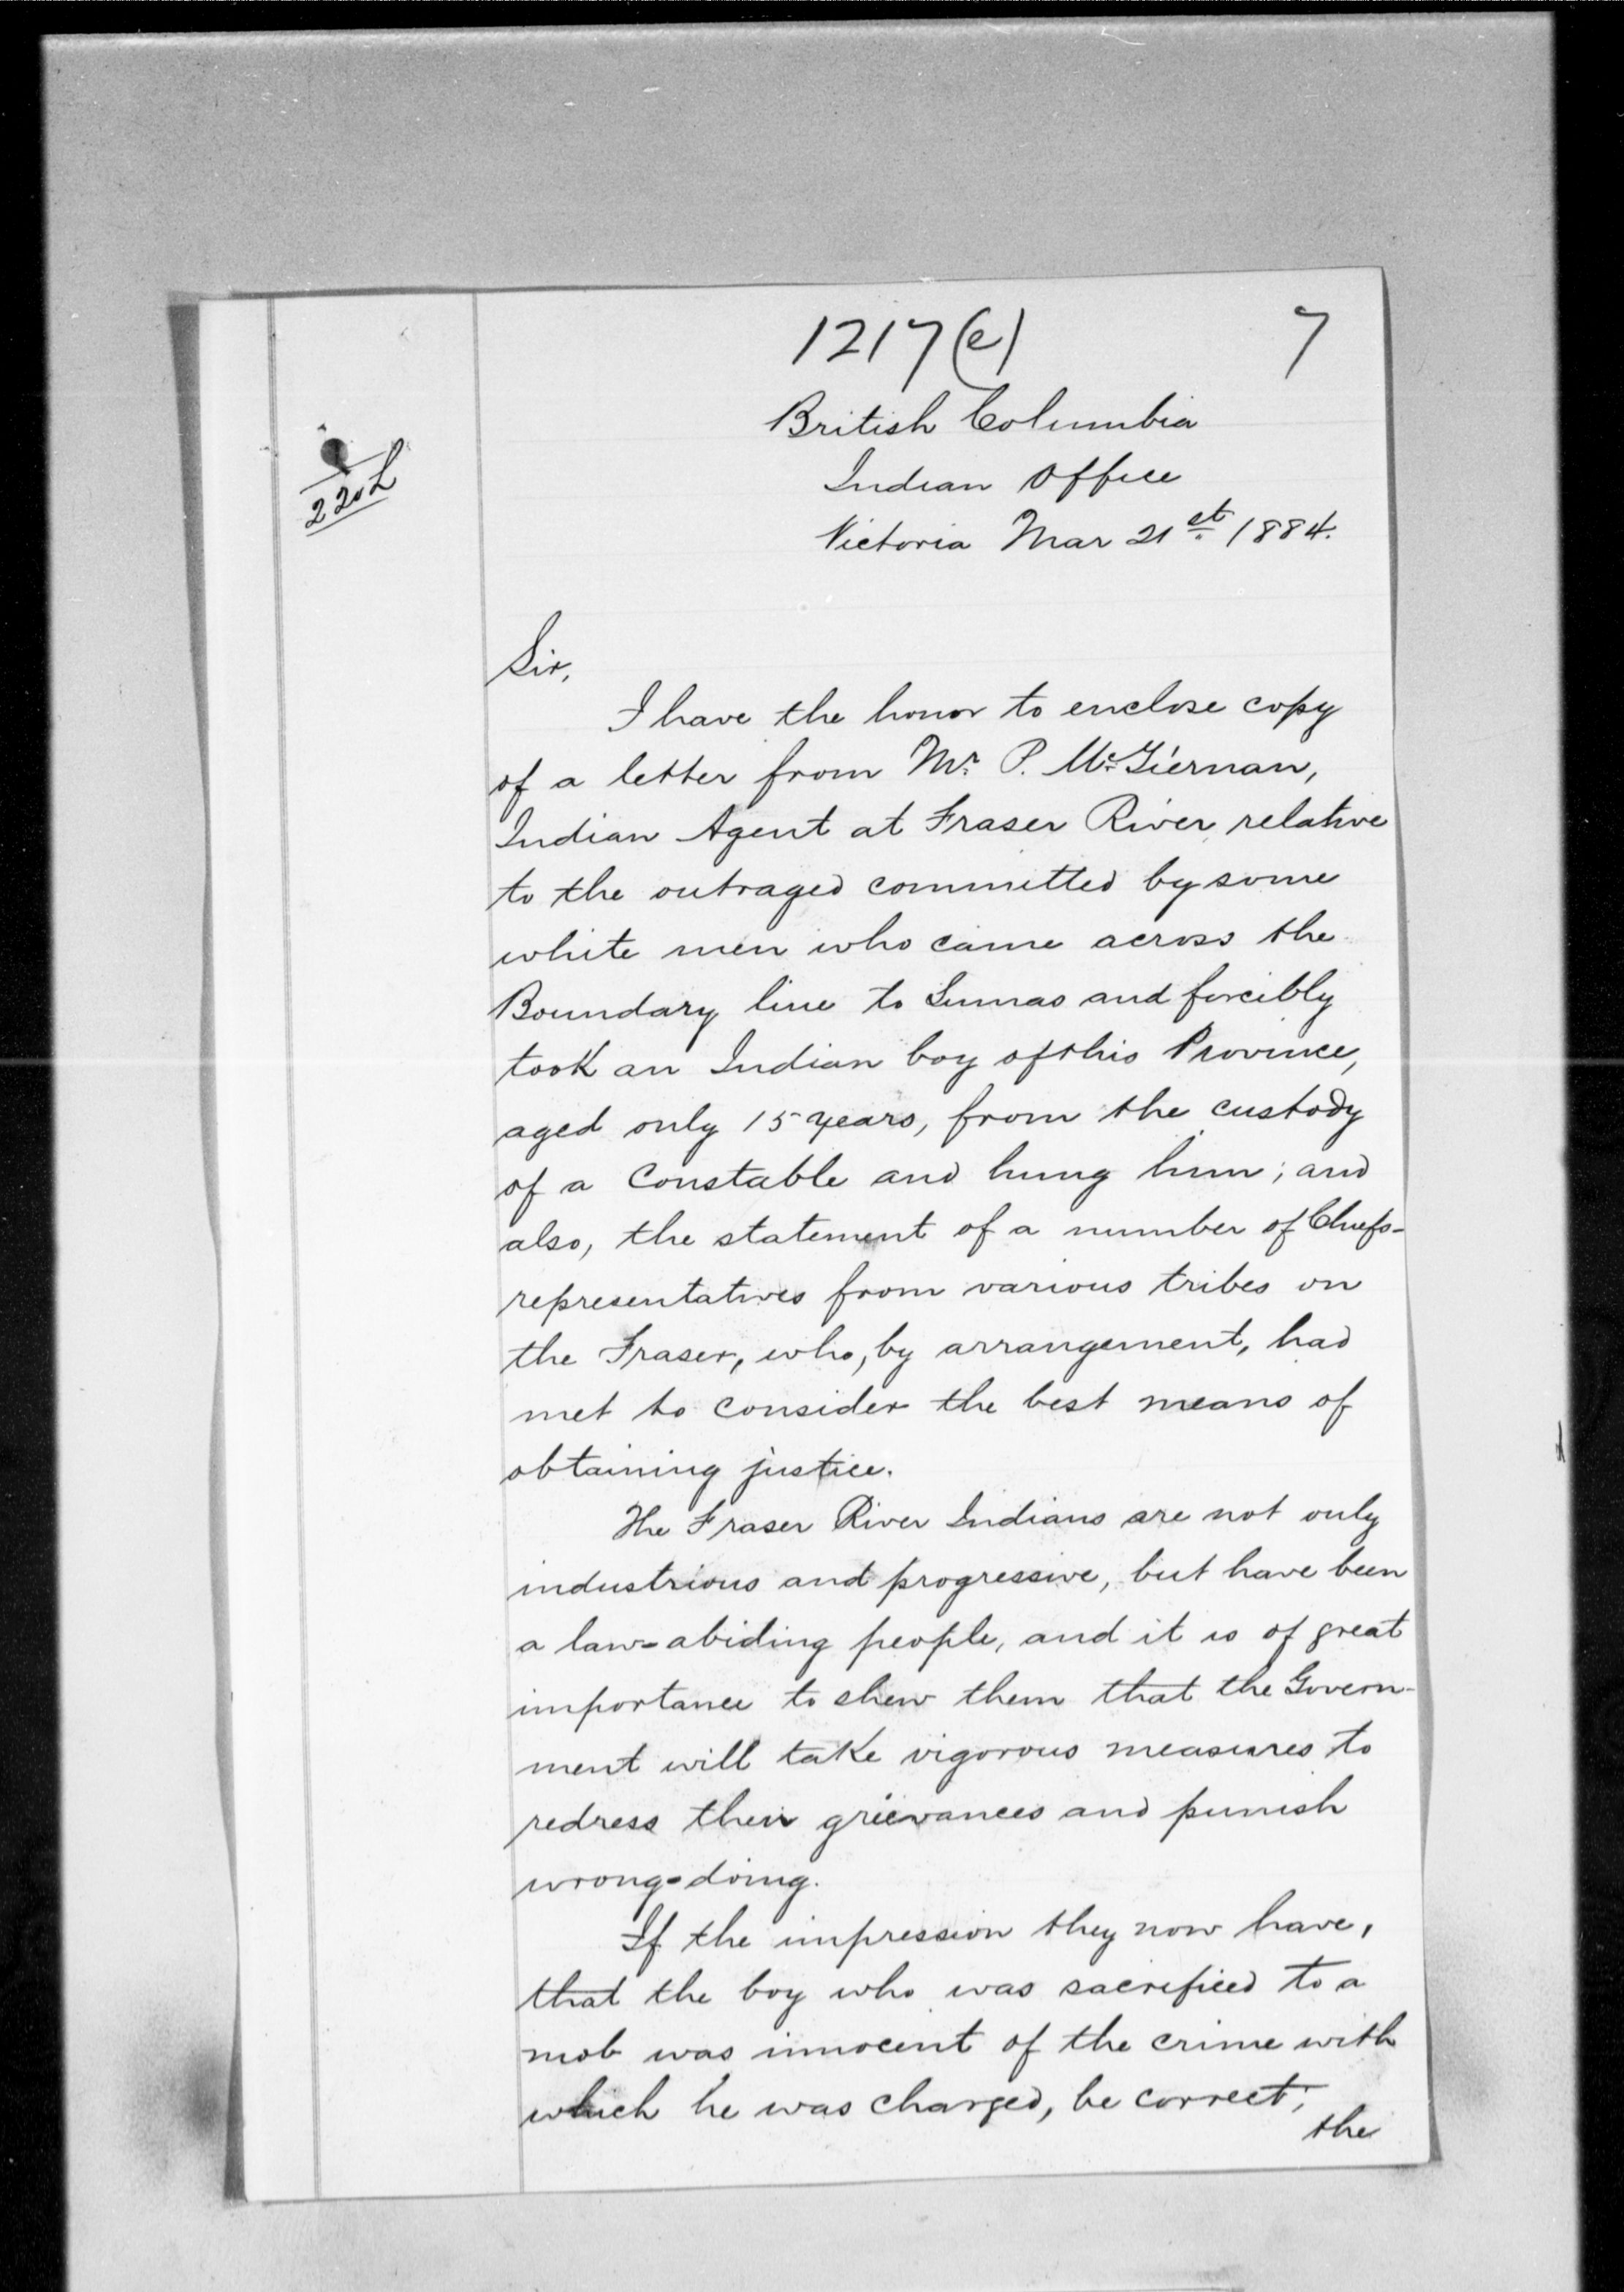 1217(e) 7
British Columbia
Indian Office
Victoria Mar 21st 1884.
Sir,
I have the honor to enclose copy
of a letter from Mr. P. McTiernan,
Indian Agent at Fraser River relative
to the outraged committed by some
white men who came across the
Boundary line to Sumas and forcibly
took an Indian boy of this Province,
aged only 15 years, from the custody
of a Constable and hung him; and
also, the statement of a number of Chiefs-
representatives from various tribes on
the Fraser, who, by arrangement, had
met to consider the best means of
obtaining justice.
The Fraser River Indians are not only
industrious and progressive, but have been
a law-abiding people, and it is of great
importance to shew them that the Govern-
ment will take vigorous measures to
redress their grievances and punish
wrong-doing.
If the impression they now have,
that the boy who was sacrificed to a
mob was innocent of the crime with
which he was charged, be correct;
the